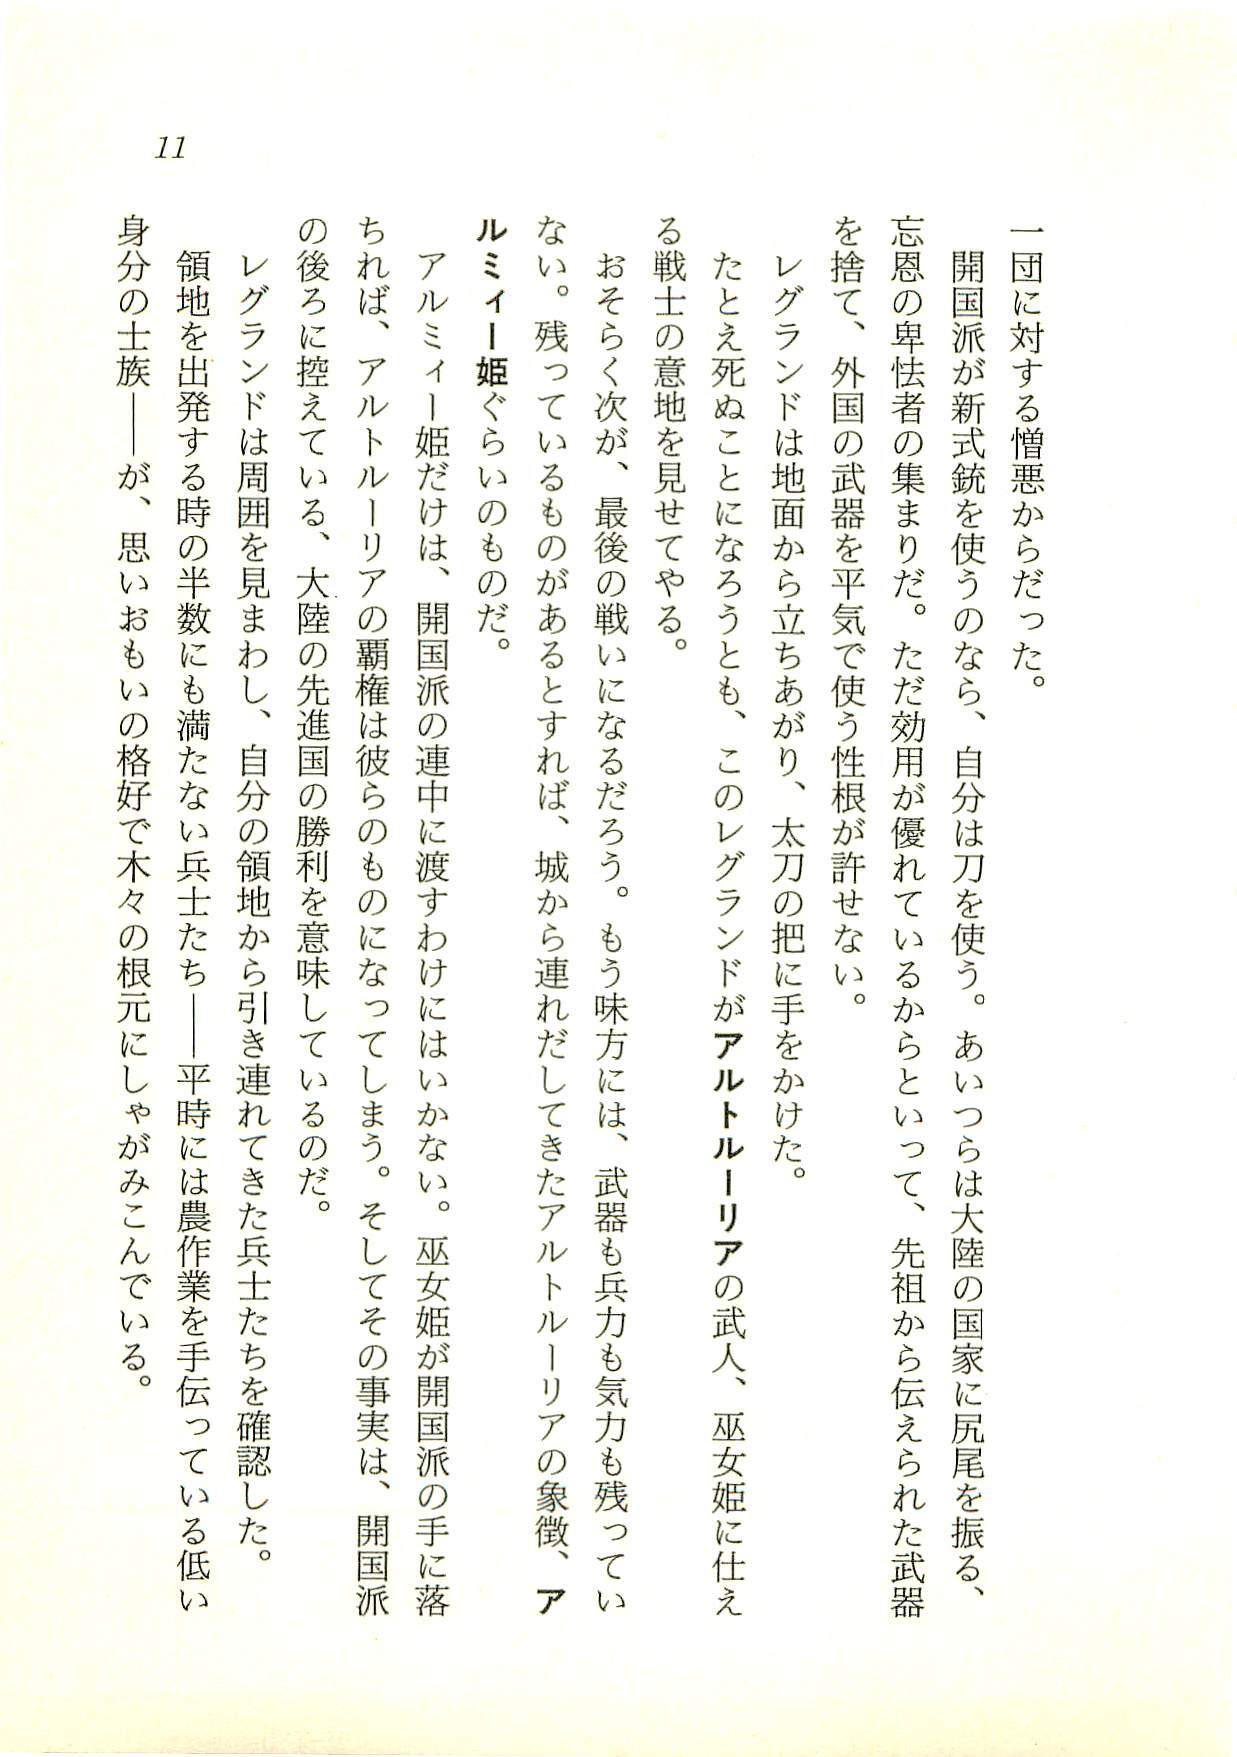 11
一団に対する憎悪からだった。
　開国派が新式銃を使うのなら、自分は刀を使う。あいつらは大陸の国家に尻尾を振る、
忘恩の卑怯者の集まりだ。ただ効用が優れているからといって、先祖から伝えられた武器
を捨て、外国の武器を平気で使う性根が許せない。
　レグランドは地面から立ちあがり、太刀の把に手をかけた。
　たとえ死ぬことになろうとも、このレグランドがアルトルーリアの武人、巫女姫に仕え
る戦士の意地を見せてやる。
　おそらく次が、最後の戦いになるだろう。もう味方には、武器も兵力も気力も残ってい
ない。残っているものがあるとすれば、城から連れだしてきたアルトルーリアの象徴、ア
ルミィー姫ぐらいのものだ。
　アルミィー姫だけは、開国派の連中に渡すわけにはいかない。巫女姫が開国派の手に落
ちれば、アルトルーリアの覇権は彼らのものになってしまう。そしてその事実は、開国派
の後ろに控えている、大陸の先進国の勝利を意味しているのだ。
　レグランドは周囲を見まわし、自分の領地から引き連れてきた兵士たちを確認した。
　領地を出発する時の半数にも満たない兵士たち――平時には農作業を手伝っている低い
身分の士族――が、思いおもいの格好で木々の根元にしゃがみこんでいる。